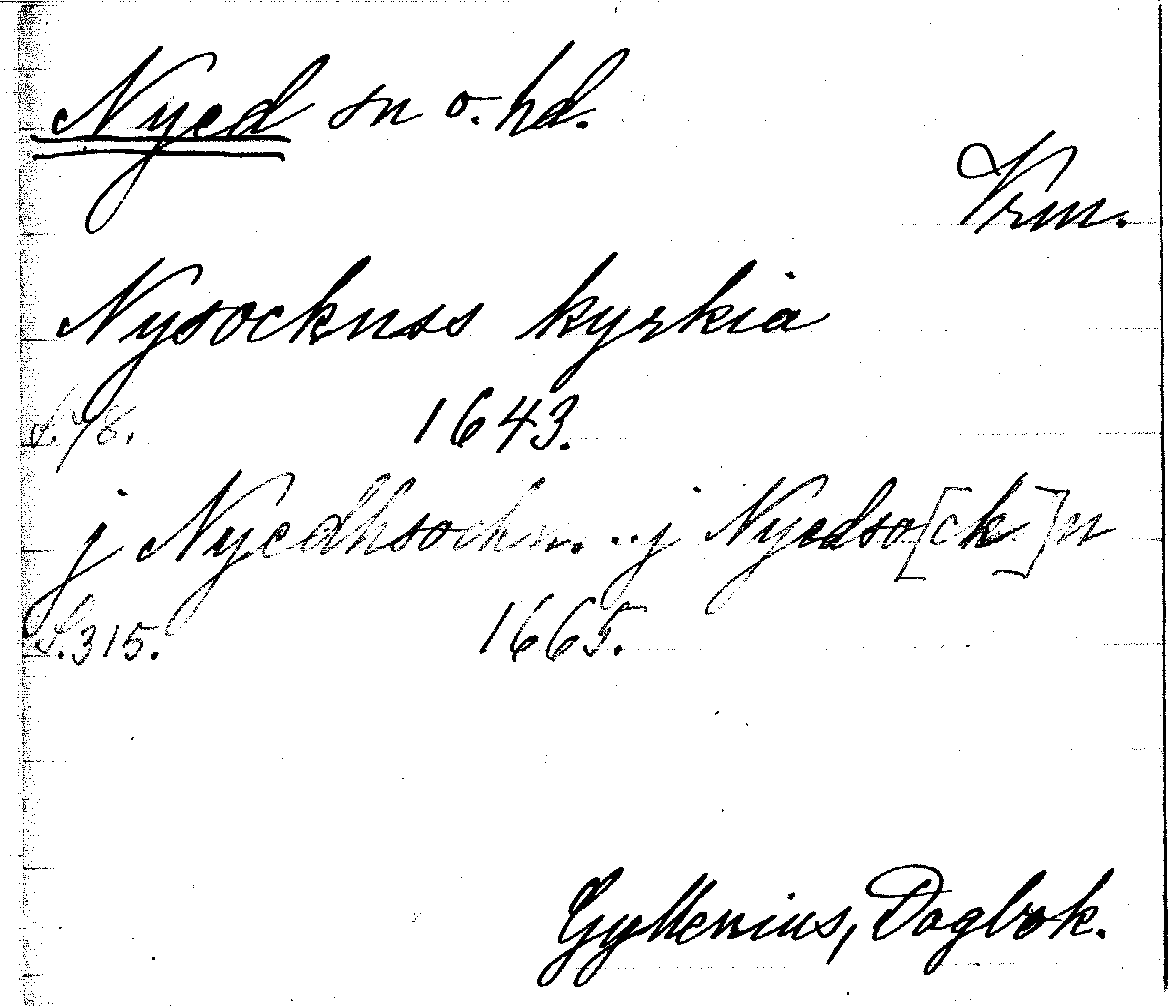 Nyed sn o. hd.
Vrm.
Nysocknss kyrkia
S. 78. 1643.
j Nyedhsochn. .. j Nyedso[ck]n
S. 315. 1665.
Gyllenius, Dagbok.